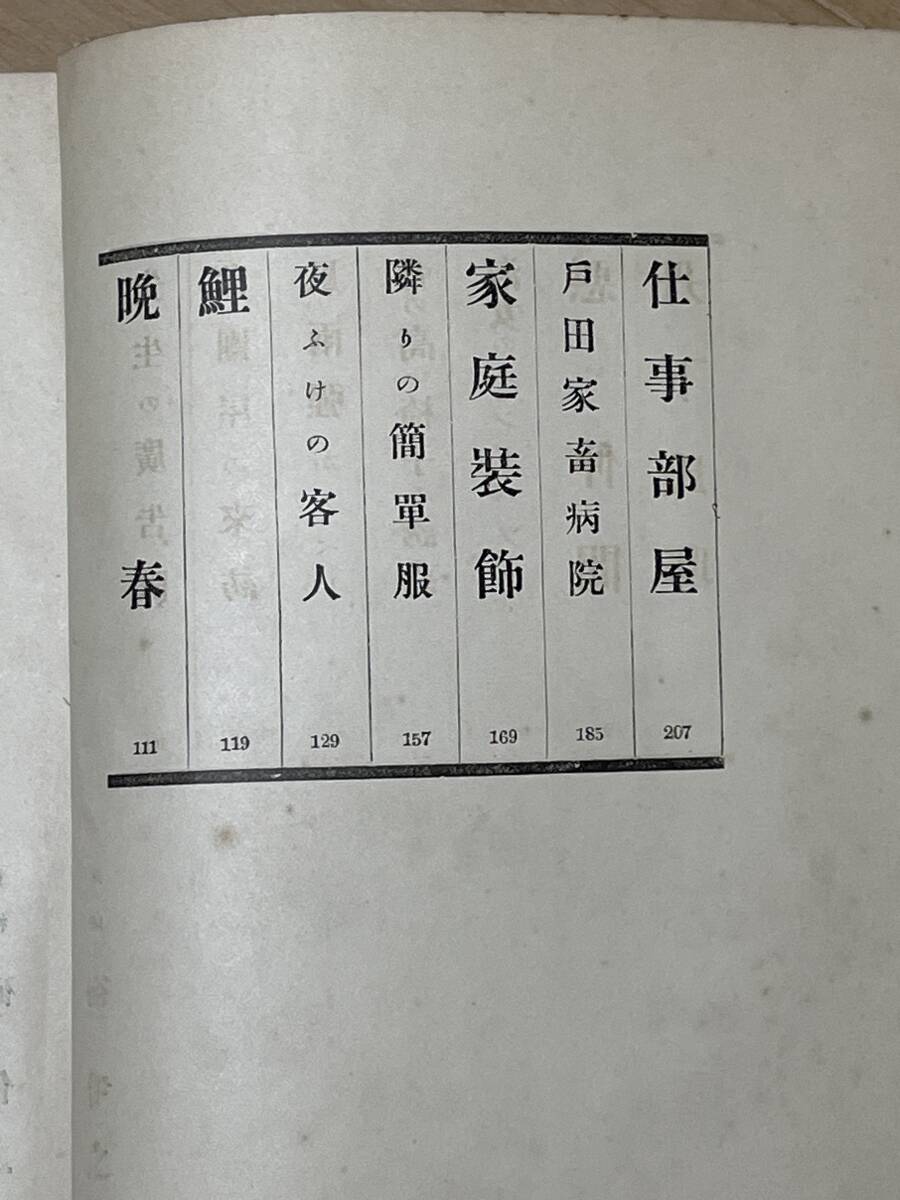 仕事部屋 207
戸田家畜病院 185
家庭装飾 169
隣りの簡單服 157
夜ふけの客人 129
鯉 119
晩春 111